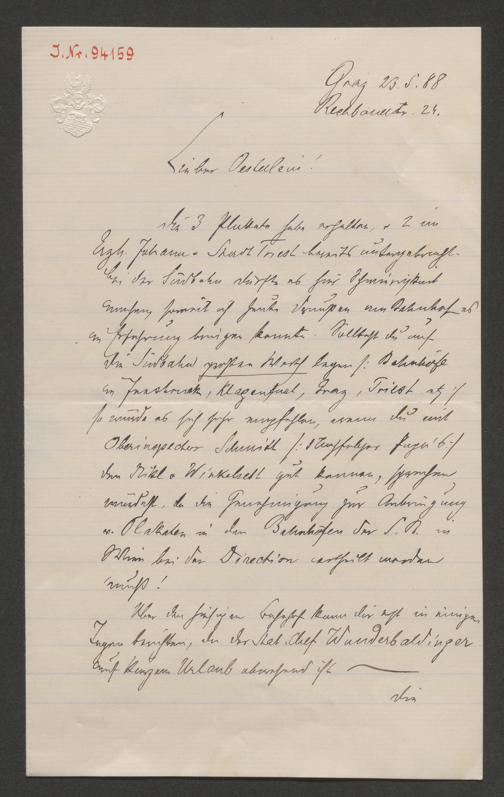 I. Nr. 94159
Graz 23.5.88
Rechbauerstr. 24.
Lieber Oesterlein!
Die 3 Plakate habe erhalten, u. 2 im
Erzh. Johann u. Stadt Triest bereits untergebracht.
Bei der Südbahn dürfte es hier Schwierigkeit
machen, soweit ich heute draußen am Bahnhof es
in Erfahrung bringen konnte. Solltest du auf
die Südbahn großen Werth legen /: Bahnhöfe
in Innsbruck, Klagenfurt, Graz, Triest etz :/
so würde es sich sehr empfehlen, wenn du mit
Oberinspector Schmidl /: Nachfolger Papa's :/
den Nikl u Winkelsedt gut kennen, sprechen
würdest, da die Genehmigung zur Anbringung
v. Plakaten in den Bahnhöfen der S. B. in
Wien bei der Direction ertheilt werden
muß!
Über den hiesigen Bahnhof kann dir erst in einigen
Tagen berichten, da der Stat. Chef Wunderbaldinger
auf kurzem Urlaub abwesend ist
die